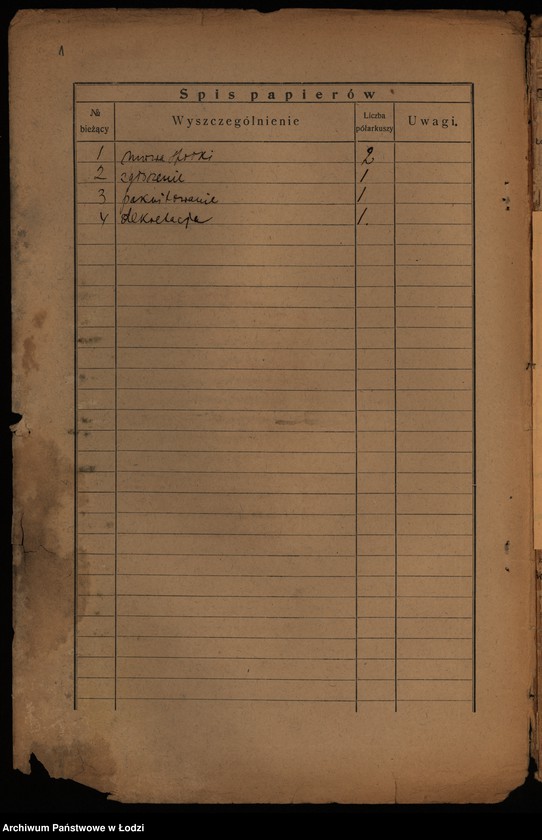 1
Spis papierów
№ bieżący Wyszczególnienie Liczba półarkuszy Uwagi.
1 2
2 zgłoszenie 1
3 pokwitowanie 1
4 dekretacja 1.
Archiwum Państwowe w Łodzi